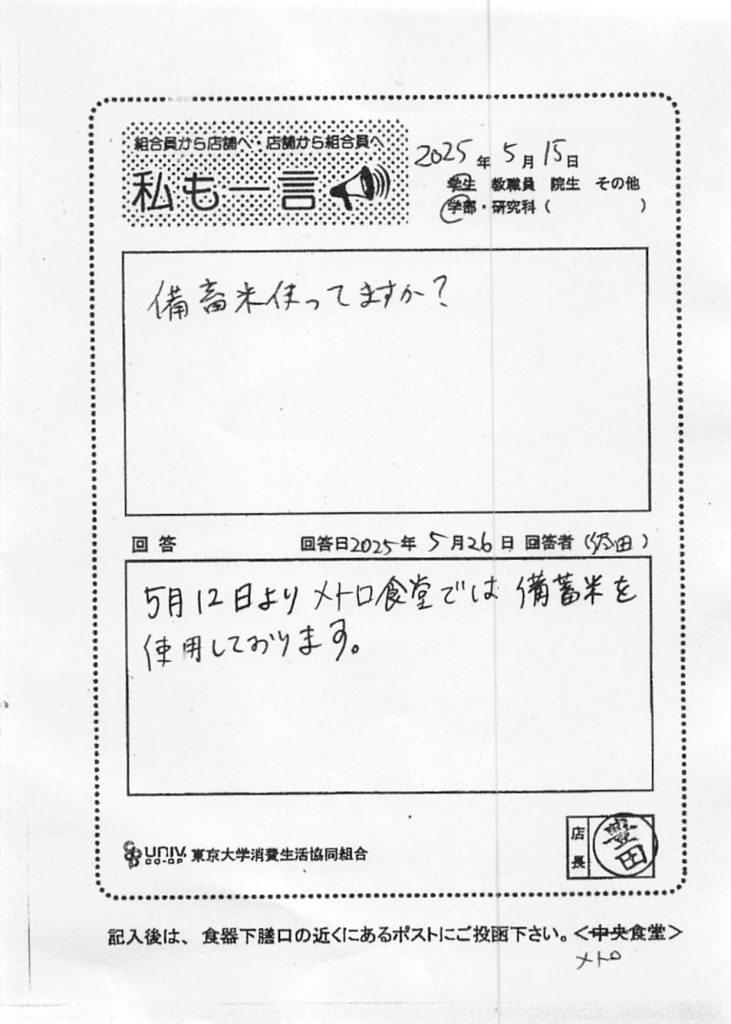 組合員から店舗へ・店舗から組合員へ
私も一言
2025年 5月 15日
学生 教職員 院生 その他
学部・研究科( )
備蓄米使ってますか?
回答 回答日2025年 5月26日 回答者( 田)
5月12日より メトロ食堂では 備蓄米を
使用しております。
店長
豊田
UNIV. CO-OP 東京大学消費生活協同組合
記入後は、食器下膳口の近くにあるポストにご投函下さい。<中央食堂>
メトロ